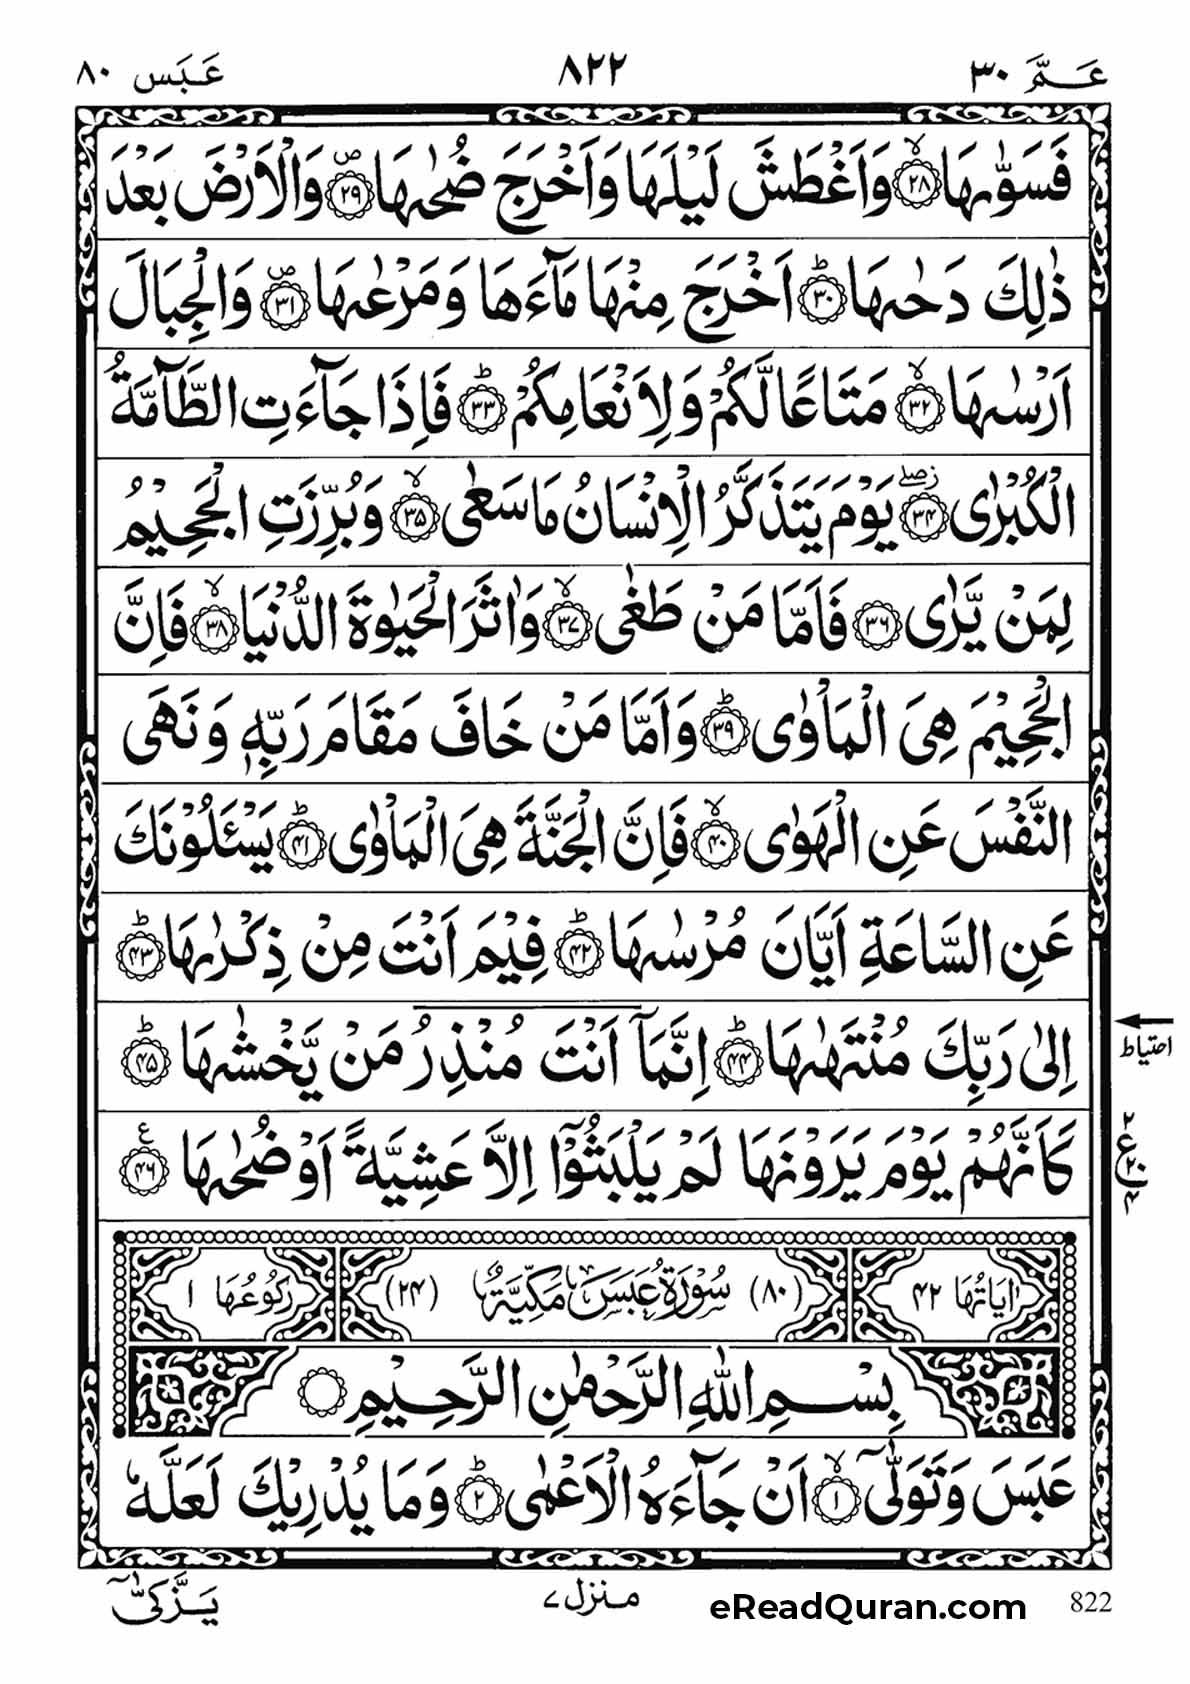 عَـمَّ ٣٠ ٨٢٢ عَـبَـس ٨٠
فَسَوّٰىهَا ۙ﴿۲۸﴾ وَاَغْطَشَ لَيْلَهَا وَاَخْرَجَ ضُحٰىهَا ۪﴿۲۹﴾ وَالْاَرْضَ بَعْدَ
ذٰلِكَ دَحٰىهَا ؕ﴿۳۰﴾ اَخْرَجَ مِنْهَا مَآءَهَا وَمَرْعٰىهَا ۪﴿۳۱﴾ وَالْجِبَالَ
اَرْسٰىهَا ۙ﴿۳۲﴾ مَتَاعًا لَّكُمْ وَلِاَنْعَامِكُمْ ؕ﴿۳۳﴾ فَاِذَا جَآءَتِ الطَّآمَّةُ
الْكُبْرٰى ۫ۖ﴿۳۴﴾ يَوْمَ يَتَذَكَّرُ الْاِنْسَانُ مَا سَعٰى ۙ﴿۳۵﴾ وَبُرِّزَتِ الْجَحِيْمُ
لِمَنْ يَّرٰى ﴿۳۶﴾ فَاَمَّا مَنْ طَغٰى ۙ﴿۳۷﴾ وَاٰثَرَ الْحَيٰوةَ الدُّنْيَا ۙ﴿۳۸﴾ فَاِنَّ
الْجَحِيْمَ هِىَ الْمَاْوٰى ؕ﴿۳۹﴾ وَاَمَّا مَنْ خَافَ مَقَامَ رَبِّهٖ وَنَهَى
النَّفْسَ عَنِ الْهَوٰى ۙ﴿۴۰﴾ فَاِنَّ الْجَنَّةَ هِىَ الْمَاْوٰى ؕ﴿۴۱﴾ يَسْـَٔلُوْنَكَ
عَنِ السَّاعَةِ اَيَّانَ مُرْسٰىهَا ؕ﴿۴۲﴾ فِيْمَ اَنْتَ مِنْ ذِكْرٰىهَا ؕ﴿۴۳﴾
اِلٰى رَبِّكَ مُنْتَهٰىهَا ؕ﴿۴۴﴾ اِنَّمَاۤ اَنْتَ مُنْذِرُ مَنْ يَّخْشٰىهَا ؕ﴿۴۵﴾
احتیاط
كَاَنَّهُمْ يَوْمَ يَرَوْنَهَا لَمْ يَلْبَثُوْۤا اِلَّا عَشِيَّةً اَوْ ضُحٰىهَا ﴿۴۶﴾ ع
٢ ع ٢٠ ٣
اٰيَاتُهَا ۴۲ (۸۰) سُوْرَةُ عَبَسَ مَكِّيَّةٌ (۲۴) رُكُوْعُهَا ۱
بِسْمِ اللّٰهِ الرَّحْمٰنِ الرَّحِيْمِ
عَبَسَ وَتَوَلّٰىۤ ۙ﴿۱﴾ اَنْ جَآءَهُ الْاَعْمٰى ؕ﴿۲﴾ وَمَا يُدْرِيْكَ لَعَلَّهٗ
822 eReadQuran.com منزل ٧ يَزَّكّٰىۤ